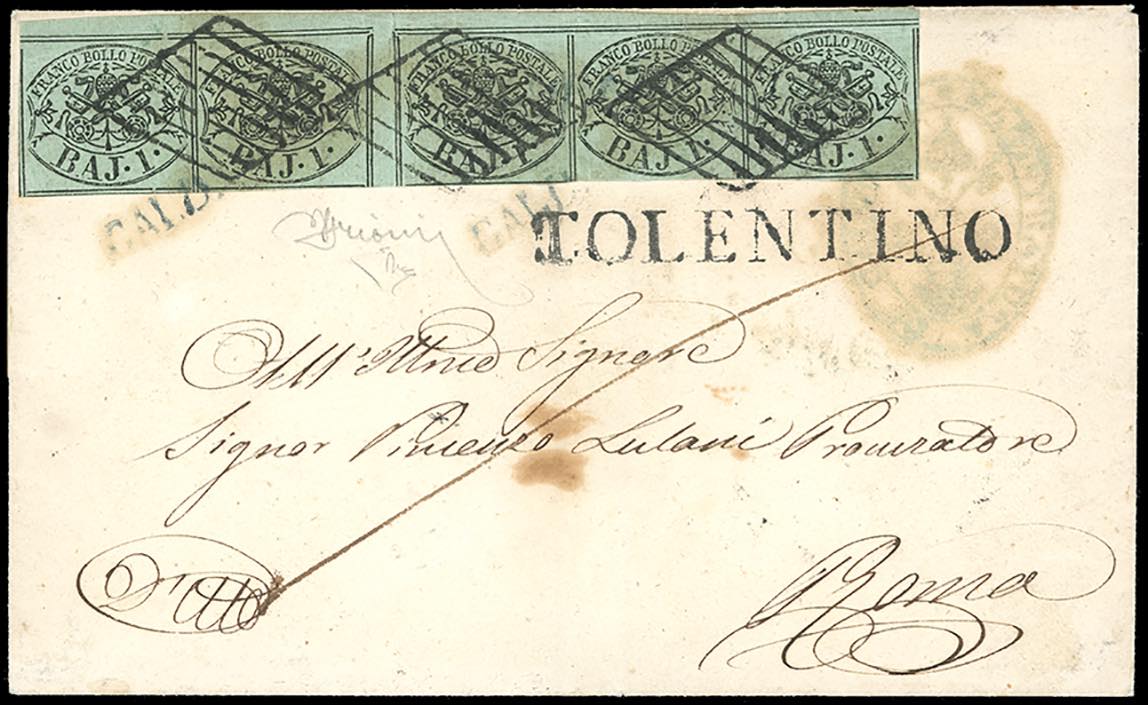 FRANCO BOLLO POSTALE FRANCO BOLLO POSTALE FRANCO BOLLO POSTALE FRANCO BOLLO POSTALE FRANCO BOLLO POSTALE
BAJ. 1. BAJ. 1. BAJ. 1. BAJ. 1. BAJ. 1.
TOLENTINO
All' Illmo Signore
Signor Vincenzo Lulani Procuratore
D'Uffo
Roma